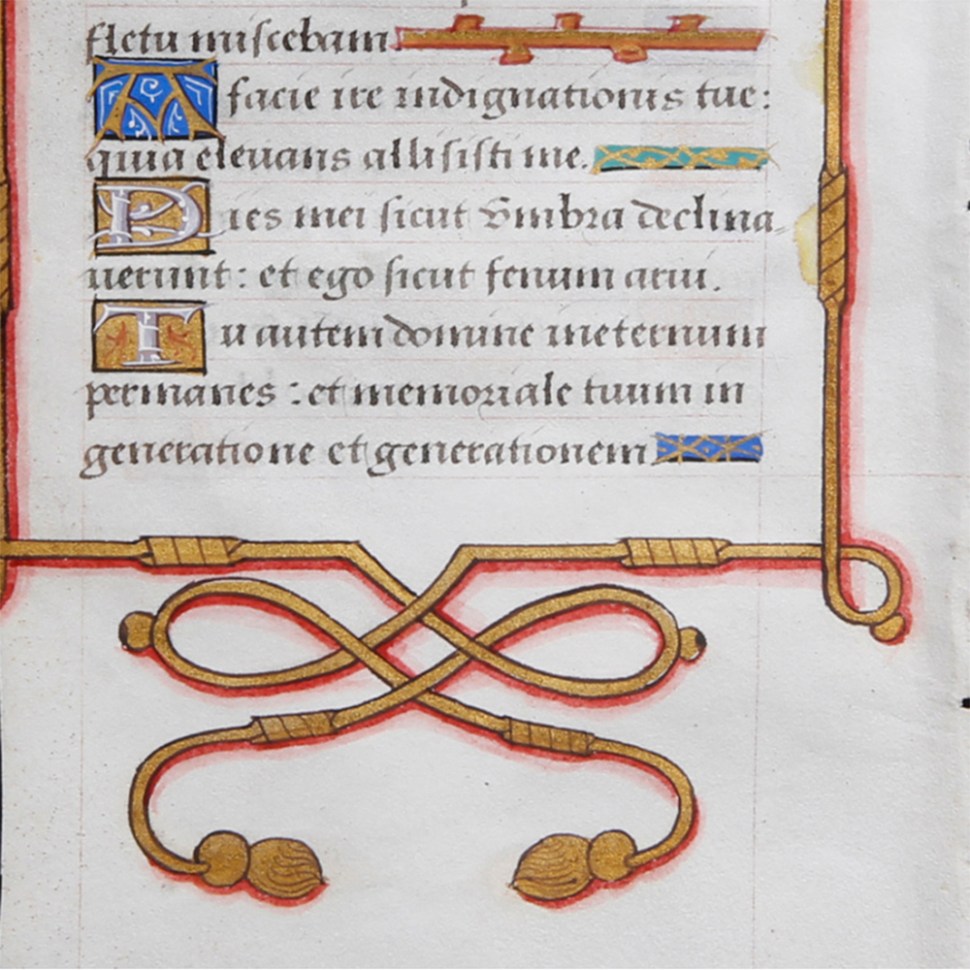 fletu miscebam
A facie ire indignationis tue:
quia elevans allisisti me.
Dies mei sicut vmbra declina
uerunt: et ego sicut fenum arui.
Tu autem domine ineternum
permanes: et memoriale tuum in
generatione et generationem